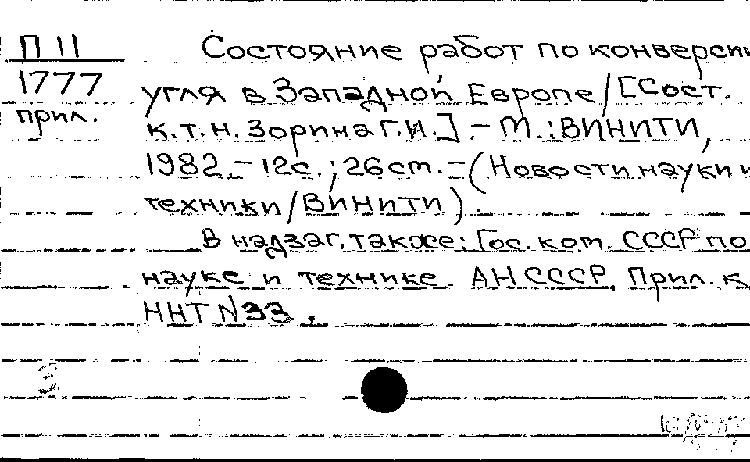 П 11
1777
прил.
Состояние работ по конверсии
угля в Западной Европе/[Сост.
к.т.н. Зорина Г.И.] - М.: ВИНИТИ,
1982. - 12с.; 26 cm. - (Новости науки и
техники/ВИНИТИ).
В надзаг. также: Гос. ком. СССР по
науке и технике. АН СССР. Прил. к
ННТ N33.
3